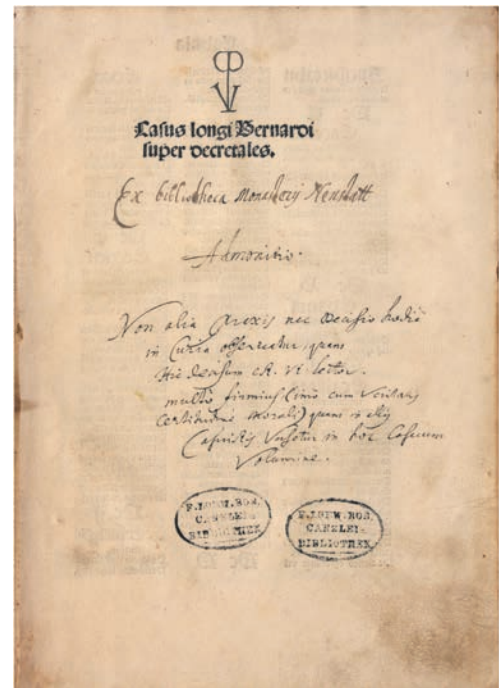 Casus longi Bernardi
super decretales.
Ex bibliotheca Monasterij Neustatt
Admonitio.
Non alia praxis nec decisio hodie
in Curia observatur, quam
Hic decisum est. Vt lector
multo firmius (imo cum veritatis
certitudine morali) quam in aliis
Casuistis versetur in hoc Casuum
Volumine.
F. LÖEW. ROS.
CANZLEI-
BIBLIOTHEK
F. LÖEW. ROS.
CANZLEI-
BIBLIOTHEK